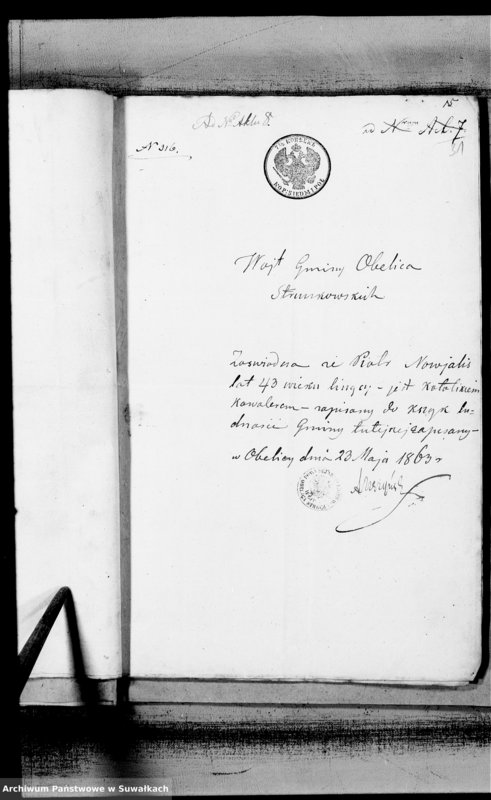 15
Do N° Aktu 8.
ad N Akt. 7
N° 316.
7½ КОПѢЕКЪ
KOP: SIEDM I PÓŁ
Wójt Gminy Obelica
Strumkowskich
Zaświadcza że Piotr Nowjalis
lat 43 wieku liczący – jest katolikiem
kawalerem – zapisany do ksiąg lu-
dności Gminy tutejszej zapisany –
w Obelicy dnia 23 Maja 1863 r
Archiwum Państwowe w Suwałkach